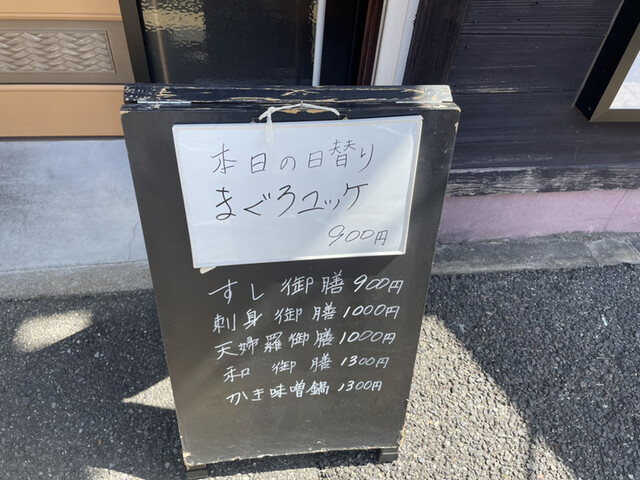 本日の日替り
まぐろユッケ
900円
すし御膳 900円
刺身御膳 1000円
天婦羅御膳 1000円
和御膳 1300円
かき味噌鍋 1300円